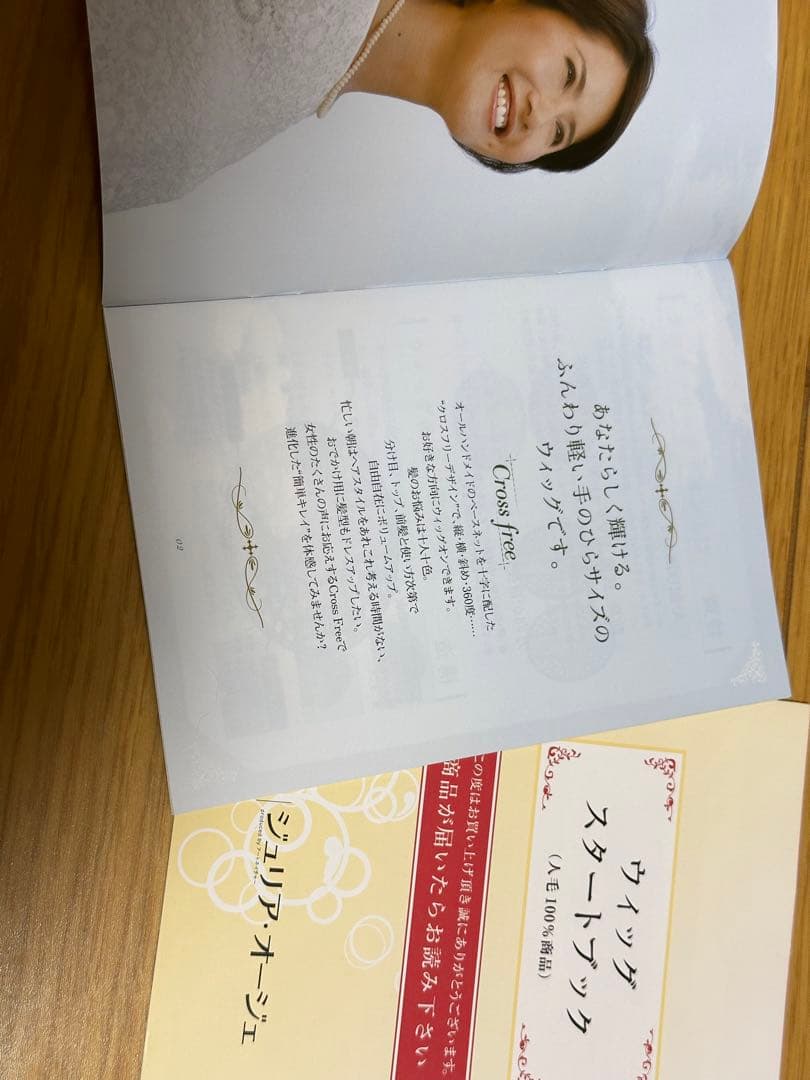 あなたらしく輝ける。
ふんわり軽い手のひらサイズの
ウィッグです。
Cross free
オールハンドメイドのベースネットを十字に配した
“クロスフリーデザイン”で、縦・横・斜め・360度……
お好きな方向にウィッグオンできます。
髪のお悩みは十人十色。
分け目、トップ、前髪と使い方次第で
自由自在にボリュームアップ。
忙しい朝はヘアスタイルをあれこれ考える時間がない、
おでかけ用に髪型もドレスアップしたい。
女性のたくさんの声にお応えするCross Freeで
進化した“簡単キレイ”を体感してみませんか?
02
ウィッグ
スタートブック
(人毛100%商品)
この度はお買い上げ頂き誠にありがとうございます。
商品が届いたらお読み下さい
ジュリア・オージェ
produced by